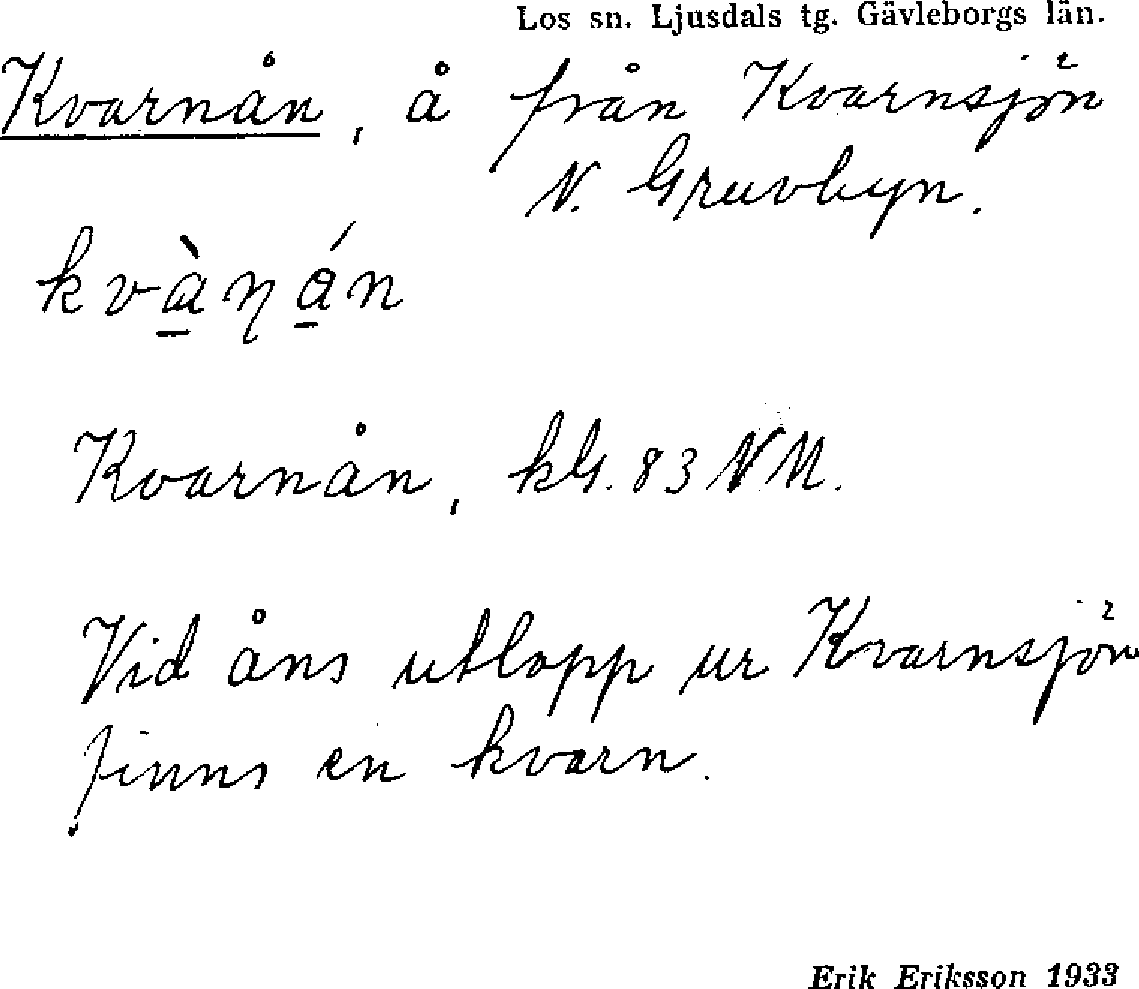 Los sn. Ljusdals tg. Gävleborgs län.
Kvarnån, å från Kvarnsjön
N. Gruvbyn.
kvàŋán
Kvarnån, kG. 83 NM.
Vid åns utlopp ur Kvarnsjön
finns en kvarn.
Erik Eriksson 1933